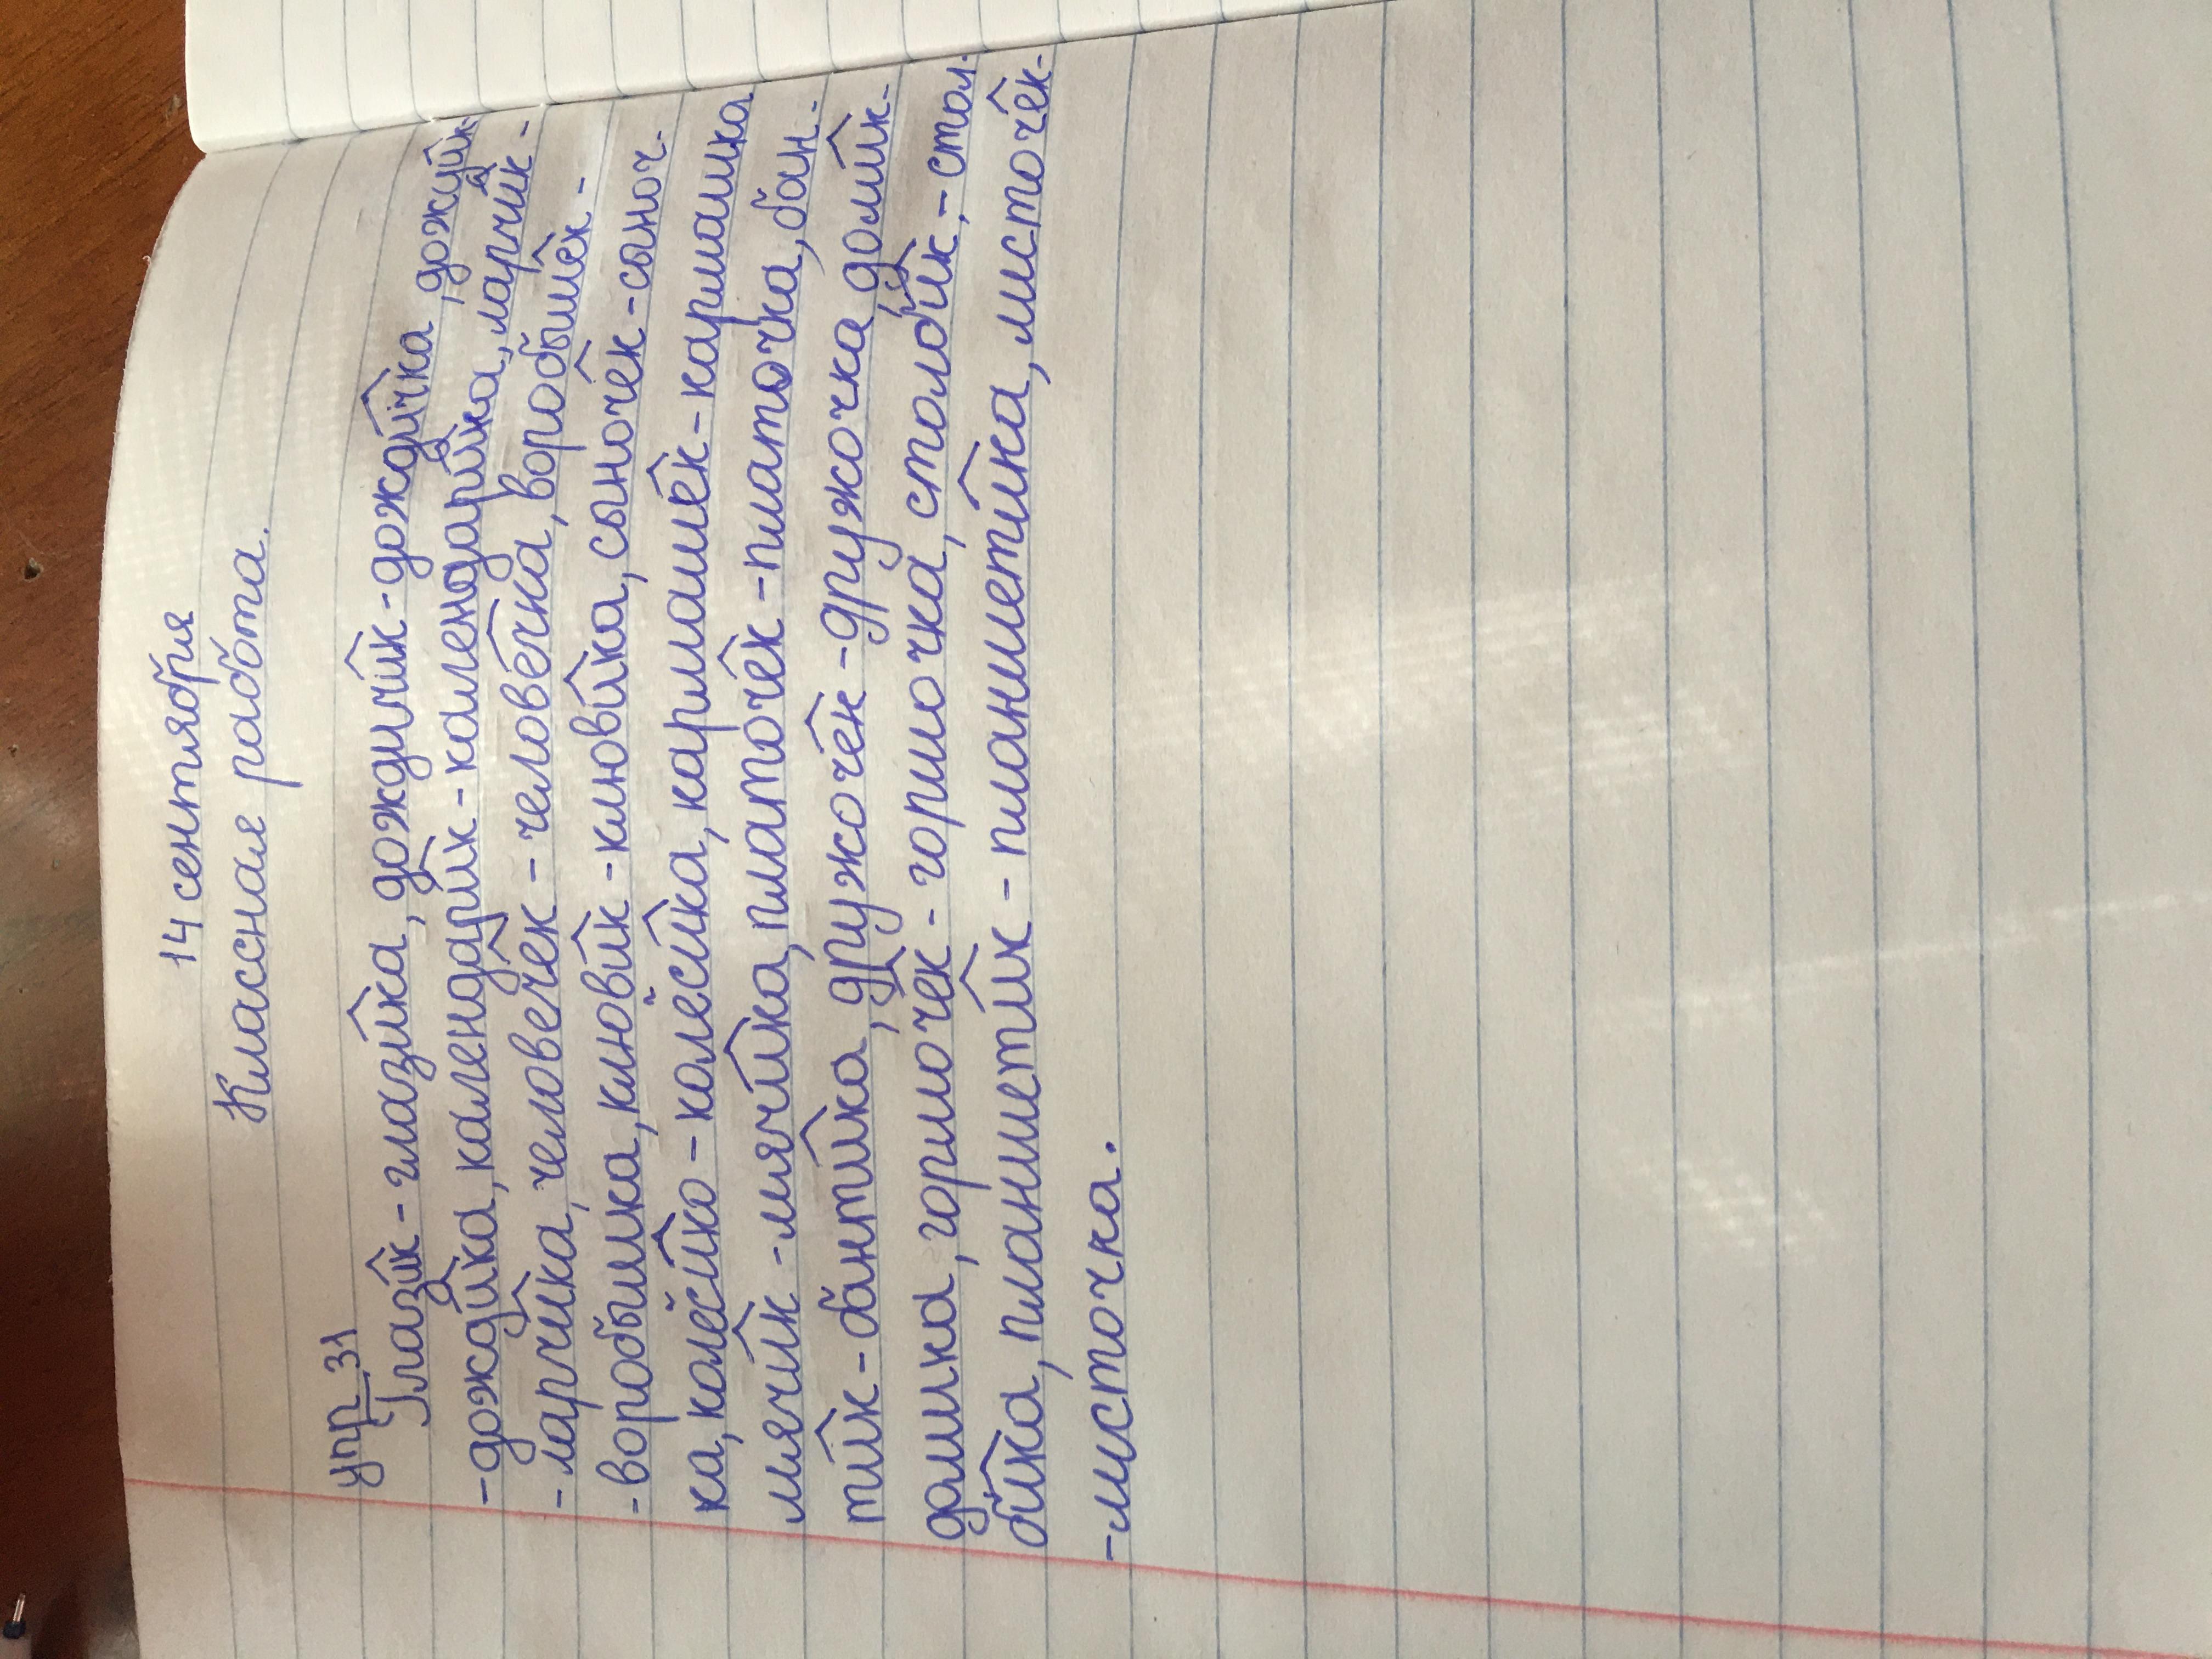 14 сентября
Классная работа.
упр 31
Глазик - глазика, дождичик - дождичка, дожик-
-дождика, календарик - календарика, ларчик -
- ларчика, человечек - человечка, воробышек -
- воробышка, клювик - клювика, сыночек - сыноч-
ка, колёсико - колёсика, кармашек - кармашка
мячик - мячика, платочек - платочка, бан-
тик - бантика, дружочек - дружочка, домик -
домика, горшочек - горшочка, столбик, - стол-
бика, планшетик - планшетика, листочек-
-листочка.